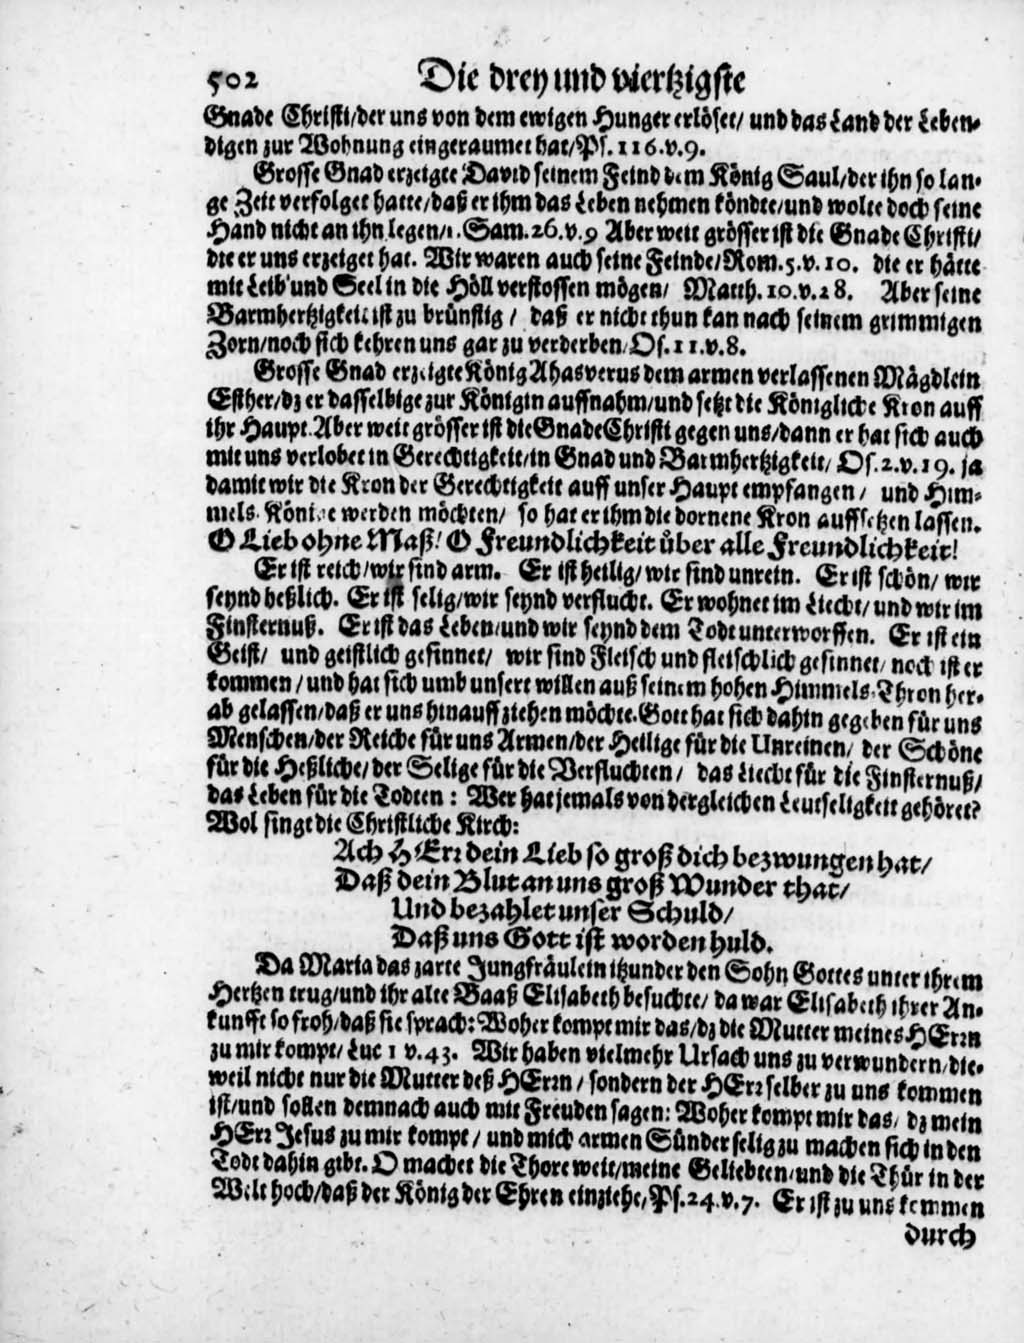 502 Die drey und viertzigste
Gnade Christi/der uns von dem ewigen Hunger erlöset/ und das Land der Leben-
digen zur Wohnung eingeraumet hat/Ps. 116.v.9.
Grosse Gnad erzeigte David seinem Feind dem König Saul/der ihn so lan-
ge Zeit verfolget hatte/daß er ihm das Leben nehmen köndte/und wolte doch seine
Hand nicht an ihn legen/1. Sam. 26.v.9 Aber weit grösser ist die Gnade Christi/
die er uns erzeiget hat. Wir waren auch seine Feinde/Rom. 5.v.10. die er hätte
mit Leib und Seel in die Höll verstossen mögen/ Matth. 10.v.28. Aber seine
Barmhertzigkeit ist zu brünstig / daß er nicht thun kan nach seinem grimmigen
Zorn/noch sich kehren uns gar zu verderben/Os. 11.v.8.
Grosse Gnad erzeigte König Ahasverus dem armen verlassenen Mägdlein
Esther/dz er dasselbige zur Königin auffnahm/und setzt die Königliche Kron auff
ihr Haupt. Aber weit grösser ist die Gnade Christi gegen uns/dann er hat sich auch
mit uns verlobet in Gerechtigkeit/in Gnad und Barmhertzigkeit/ Os. 2.v.19. ja
damit wir die Kron der Gerechtigkeit auff unser Haupt empfangen / und Him-
mels-Könige werden möchten/ so hat er ihm die dornene Kron auffsetzen lassen.
O Lieb ohne Maß! O Freundlichkeit über alle Freundlichkeit!
Er ist reich/wir sind arm. Er ist heilig/ wir sind unrein. Er ist schön/ wir
seynd heßlich. Er ist selig/wir seynd verflucht. Er wohnet im Liecht/ und wir im
Finsternuß. Er ist das Leben/und wir seynd dem Todt unterworffen. Er ist ein
Geist/ und geistlich gesinnet/ wir sind Fleisch und fleischlich gesinnet/ noch ist er
kommen / und hat sich umb unsert willen auß seinem hohen Himmels-Thron her-
ab gelassen/daß er uns hinauff ziehen möchte. Gott hat sich dahin gegeben für uns
Menschen/der Reiche für uns Armen/der Heilige für die Unreinen/ der Schöne
für die Heßliche/ der Selige für die Verfluchten / das Liecht für die Finsternuß/
das Leben für die Todten : Wer hat jemals von dergleichen Leutseligkeit gehöret?
Wol singt die Christliche Kirch:
Ach HErr dein Lieb so groß dich bezwungen hat/
Daß dein Blut an uns groß Wunder that/
Und bezahlet unser Schuld/
Daß uns Gott ist worden huld.
Da Maria das zarte Jungfräulein itzunder den Sohn Gottes unter ihrem
Hertzen trug/und ihr alte Baaß Elisabeth besuchte/ da war Elisabeth ihrer An-
kunfft so froh/daß sie sprach: Woher kompt mir das/dz die Mutter meines HErrn
zu mir kompt/ Luc 1 v.43. Wir haben vielmehr Ursach uns zu verwundern/die-
weil nicht nur die Mutter deß HErrn / sondern der HErr selber zu uns kommen
ist/und sollen demnach auch mit Freuden sagen: Woher kompt mir das/ dz mein
HErr Jesus zu mir kompt / und mich armen Sünder selig zu machen sich in den
Todt dahin gibt. O machet die Thore weit/meine Geliebten/und die Thür in der
Welt hoch/daß der König der Ehren einziehe/Ps. 24.v.7. Er ist zu uns kommen
durch